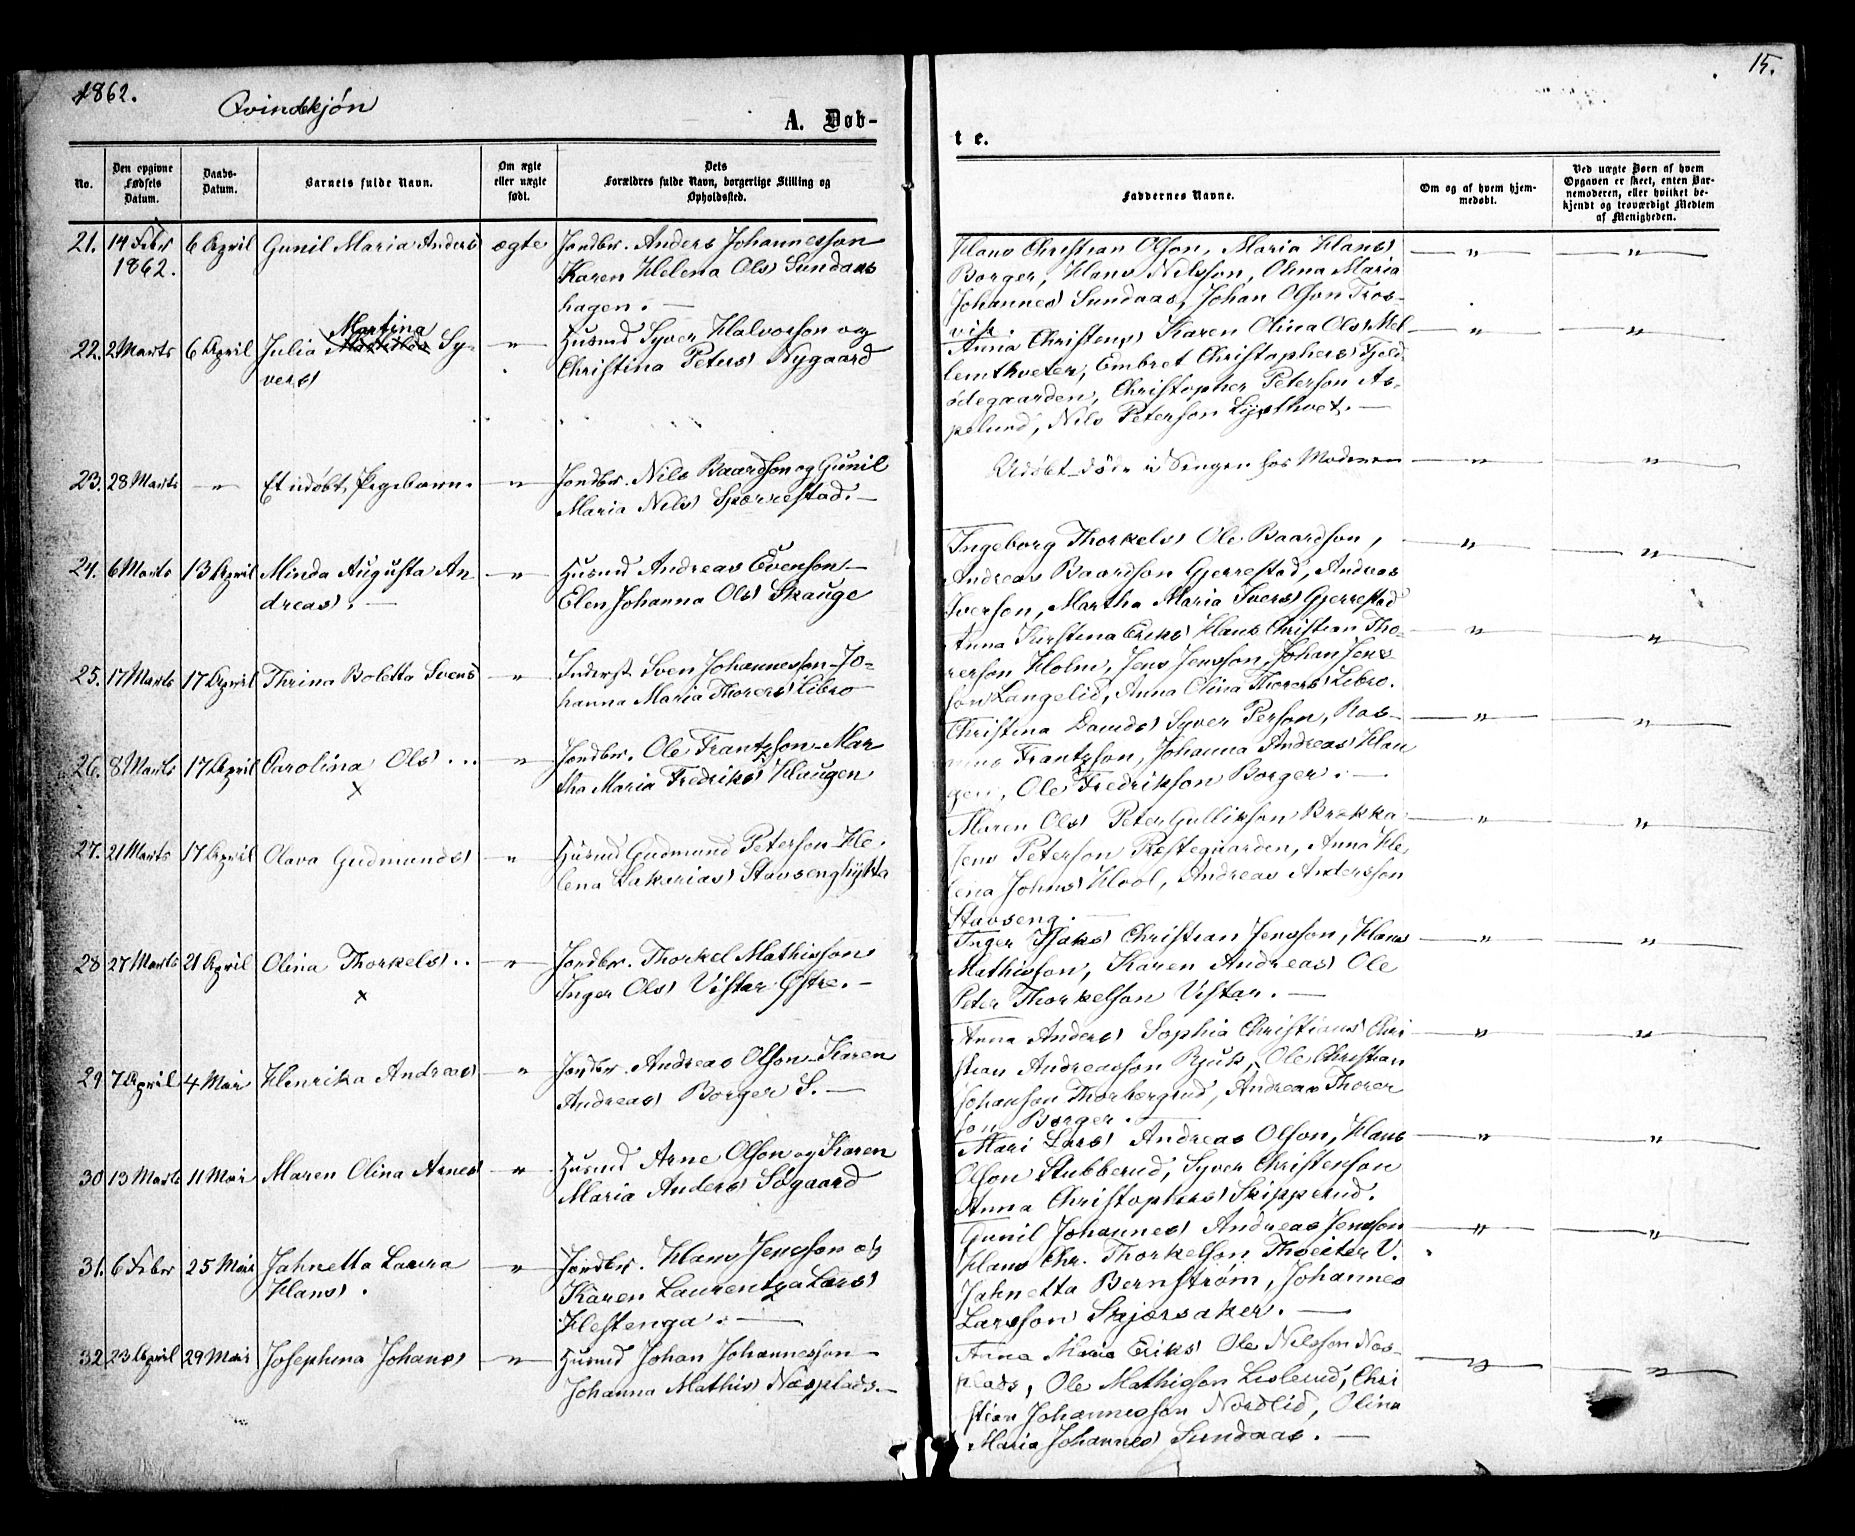 1862.
15.
Qvindekjøn
A. Døb-
te.
No.
Den opgivne Fødsels Datum.
Daabs-Datum.
Barnets fulde Navn.
Om ægte eller uægte født.
Dets Forældres fulde Navn, borgerlige Stilling og Opholdssted.
Faddernes Navne.
Om og af hvem hjem-
medøbt.
Ved uægte Børn af hvem
Opgaven er skeet, enten Bar-
nemoderen, eller hvilket be-
kjendt og troværdigt Medlem
af Menigheden.
21. 14 Febr 6 April Gunil Maria Anders ægte Jordbr. Anders Johannesson
1862. Karen Helena Ols Sundaas
hagen. —
Hans Christian Olson, Maria Hans
Borger, Hans Nilsson, Olina Maria
Johannes Sundaas, Johan Olson Tros-
vik.
Martina
22. 2 Marts 6 April Julia Mathilda Sy- " Husmd Syver Halvorson og
vers Christina Peters Nygaard
Anna Christens Karen Olina Ols Mel
lemthveter, Embret Christophers Fjeld
ødegaarden, Christopher Peterson As-
pelund, Nils Peterson Lysthvet. —
23. 28 Marts " Et udøbt Pigebarn. " Jordbr. Nils Baardson og Gunil
Maria Nils Gjerrestad. —
Udøbt døde i Sengen hos Moderen
24. 6 Marts 13 April Minda Augusta An- " Husmd Andreas Evenson —
dreas. — Elen Johanna Ols Skauge
Ingeborg Thorkels Ole Baardson,
Andreas Baardson Gjerrestad, Andreas
Iverson, Martha Maria Ivers Gjerrestad
25. 17 Marts 17 April Thrina Boletta Svens " Inderst Sven Johannesson Jo-
hanna Maria Thorers Libro
Anna Kirstina Eriks Hans Christian Tho-
rerson Holm, Jens Jensson, Johan Jens-
son Langelid, Anna Olina Thorers Libro.
26. 8 Marts 17 April Carolina Ols . . . " Jordbr. Ole Frantzson Mar
x tha Maria Fredriks Haugen
Christina Davids Syver Person, Ras-
mus Frantzson, Johanna Andreas Hau
gen, Ole Fredrikson Borger. —
27. 21 Marts 17 April Olava Gudmunds " Husmd Gudmund Peterson He-
lena Zakarias Stavsenghytta
Maren Ols Peter Gullikson Brekka
Jens Peterson Prestegaarden, Anna He-
lena Johns Hool, Andreas Andersson
Stavseng.
28 27 Marts 21 April Olina Thorkels . . " Jordbr. Thorkel Mathisson
x Inger Ols Vistar Østre. —
Inger Isaks Christian Jensson, Hans
Mathisson, Karen Andreas Ole
Peter Thorkelson Vistar. —
29 7 April 4 Mai Henrika Andreas " Jordbr. Andreas Olson Karen
Andreas Borger S. —
Anna Anders Sophia Christians Chri
stian Andreasson Bjuk, Ole Christian
Johanson Thorbergrud, Andreas Thorer
son Borger.
30 13 Marts 11 Mai Maren Olina Arnes " Husmd Arne Olson og Karen
Maria Anders Søgaard
Mari Lars Andreas Olson, Hans
Olson Stubberud, Syver Christenson
Anna Christophers Skipperud.
31. 6 Febr 25 Mai Jahnetta Laura " Jordbr. Hans Jensson og
Hans. Karen Laurentza Lars
Hestenga. —
Gunil Johannes Andreas Jensson
Hans Chr. Thorkelson Thveiter V.
Jahnetta Bernstrøm, Johannes
Larsson Skjørsaker. —
32 23 April 29 Mai Josephina Johans " Husmd Johan Johannesson —
Johanna Mathis Næsplads. —
Anna Maria Eriks Ole Nilsson Næs-
plads, Ole Mathisson Lislerud, Chri
stian Johannesson Nordlid, Olina
Maria Johannes Sundaas. —